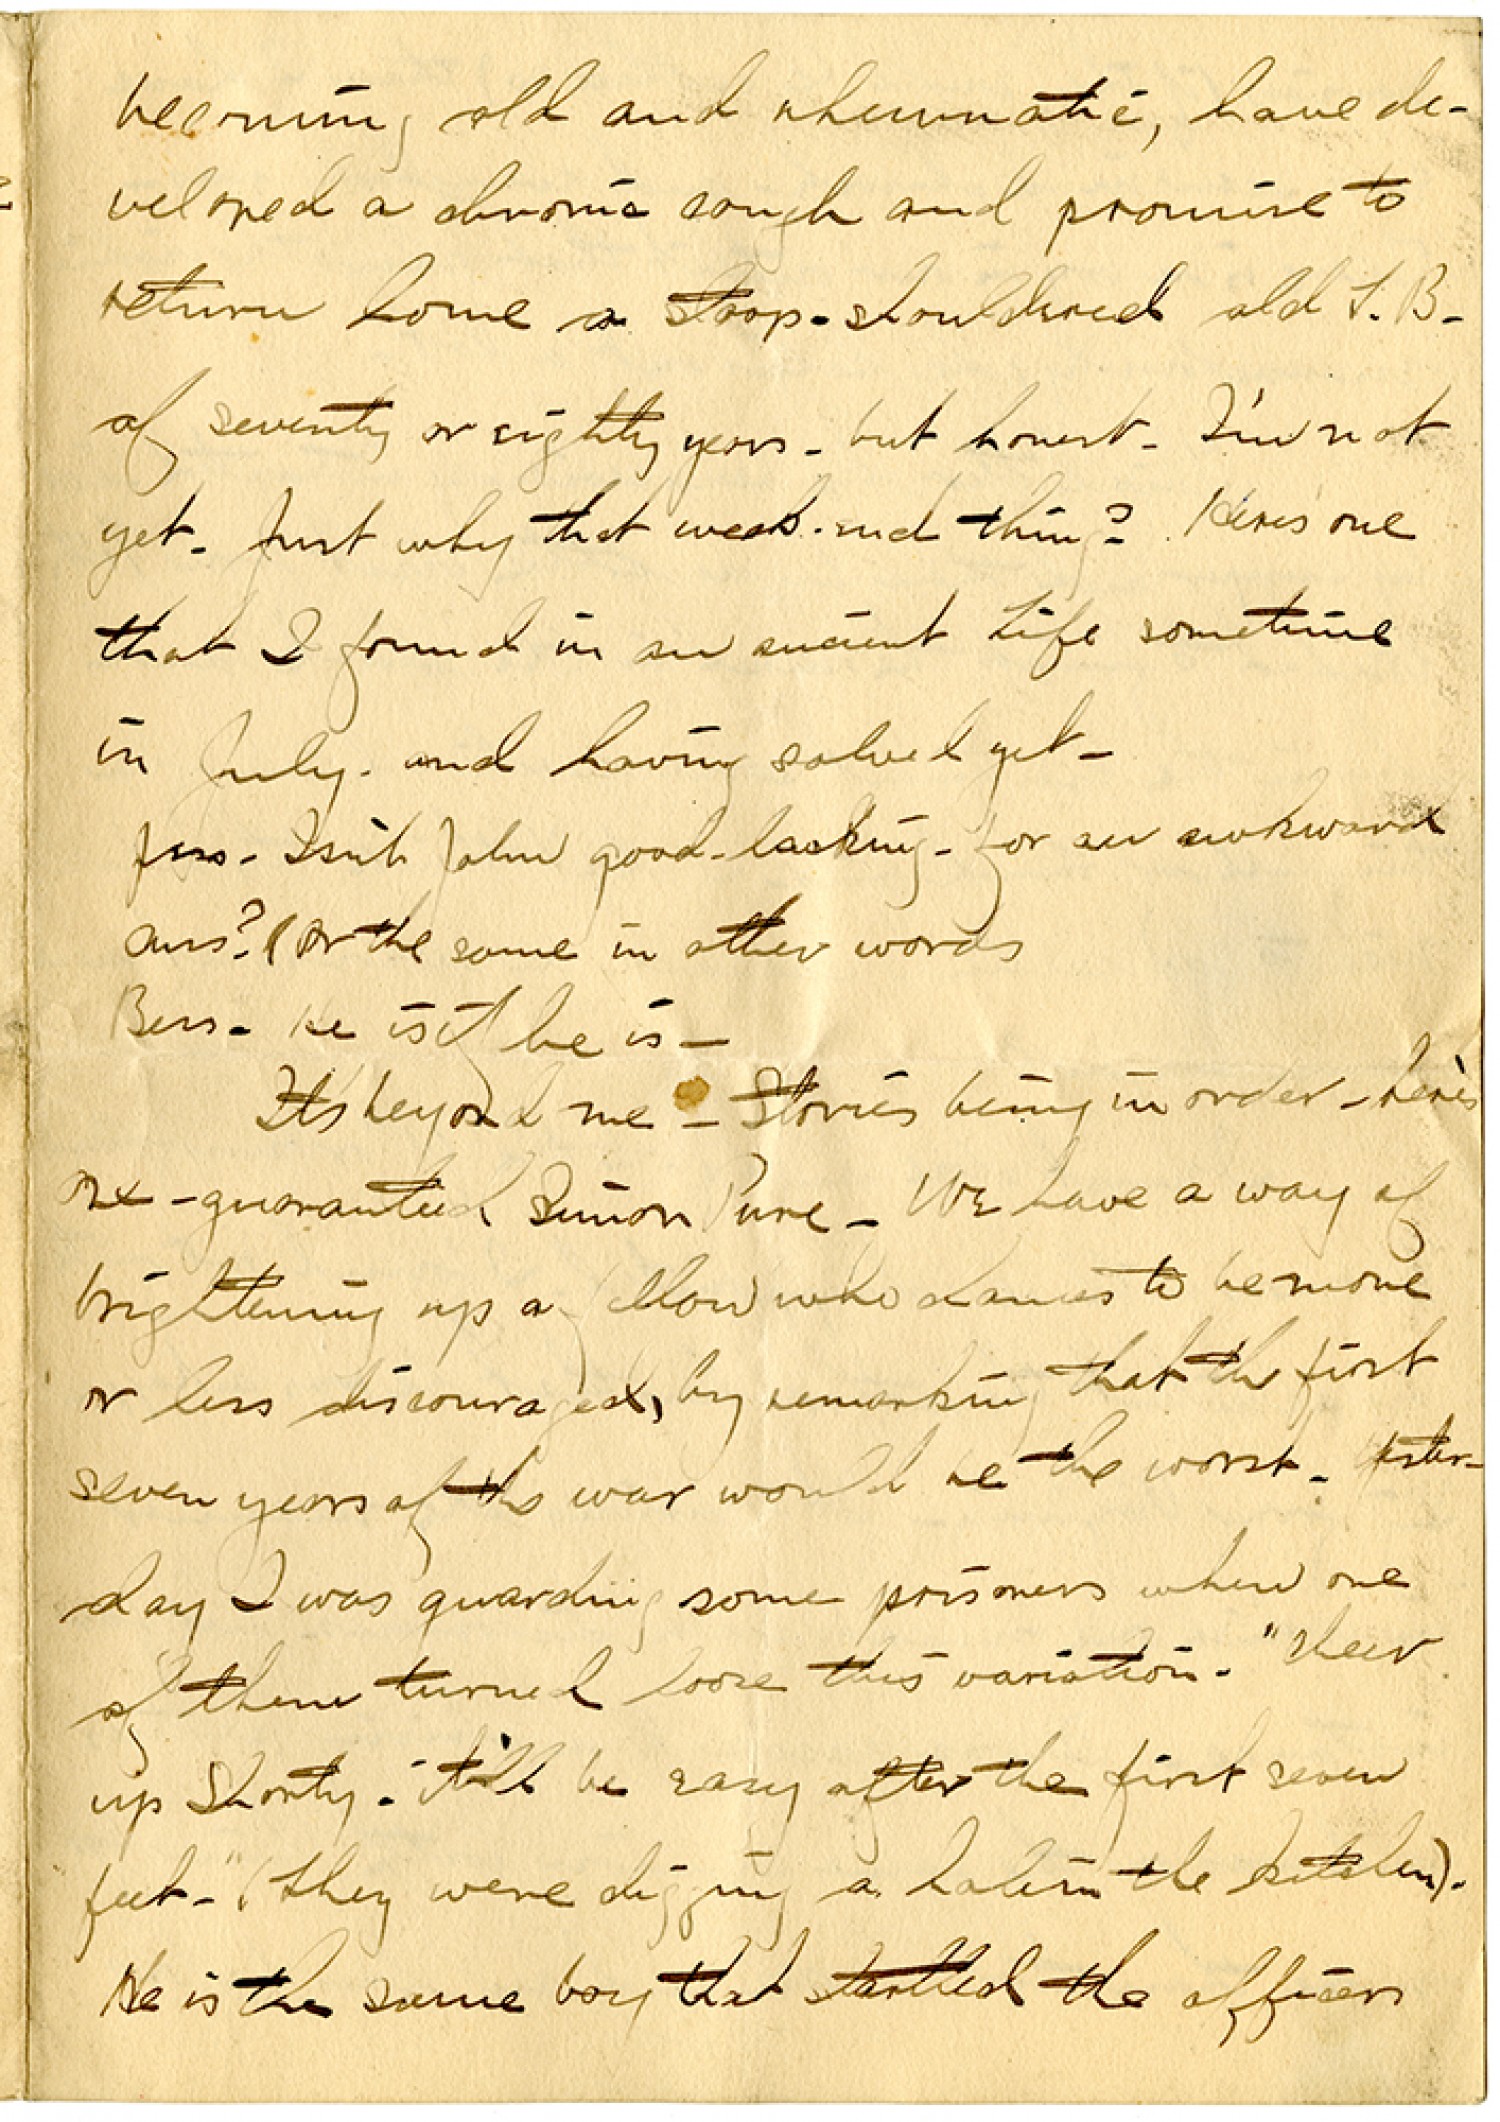 becoming old and rheumatic, have de-
veloped a chronic cough and promise to
return home a stoop-shouldered old T. B.
of seventy or eighty years - but honest - I'm not
yet. Just why that week-end thing? Here's one
that I found in an ancient Life sometime
in July. and having solved yet -
Jess - Isn't John good-looking - for an awkward
ans? (or the same in other words
Bess - He is if he is -
Its beyond me - Stories being in order - here's
one - guaranteed Simon Pure - We have a way of
brightening up a fellow who chances to be more
or less discouraged, by remarking that the first
seven years of the war would be the worst. Yester-
day I was guarding some prisoners when one
of them turned loose this variation. "Cheer
up Shorty. - it'll be easy after the first seven
feet -" (They were digging a hole in the kitchen).
He is the same boy that startled the officers